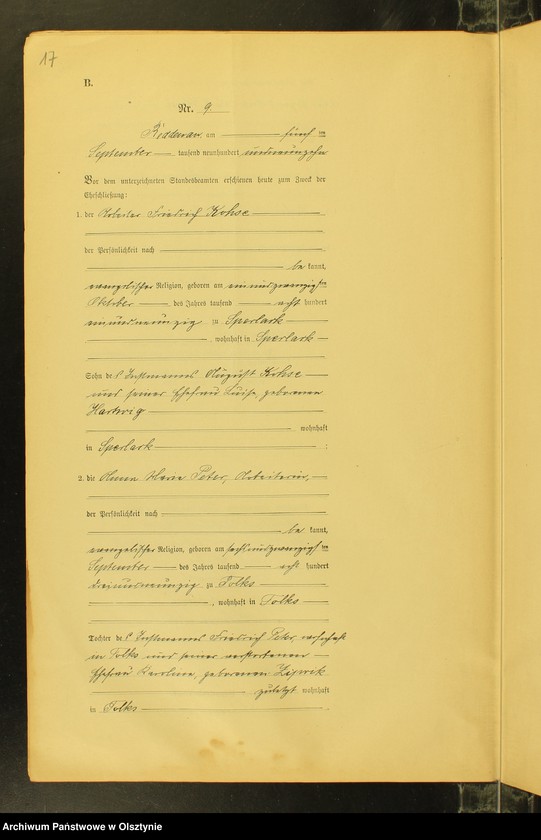 17
B.
Nr. 9.
am fünf ten
September tausend neunhundert undneunzehn
Vor dem unterzeichneten Standesbeamten erschienen heute zum Zweck der
Eheschließung:
1. der Arbeiter Friedrich Kohse
der Persönlichkeit nach
be kannt,
evangelischer Religion, geboren am einundzwanzigsten
Oktober des Jahres tausend acht hundert
einundneunzig zu Sperlack
, wohnhaft in Sperlack
Sohn des Instmannes August Kohse
und seiner Ehefrau Luise, geborenen
Hartwig
wohnhaft
in Sperlack ;
2. die Anna Maria Peter, Arbeiterin,
der Persönlichkeit nach
be kannt,
evangelischer Religion, geboren am sechsundzwanzigsten
September des Jahres tausend acht hundert
dreiundneunzig zu Tolks
, wohnhaft in Tolks
Tochter des Instmannes Friedrich Peter, wohnhaft
in Tolks und seiner verstorbenen
Ehefrau Karoline, geborenen
zuletzt wohnhaft
in Tolks
Archiwum Państwowe w Olsztynie